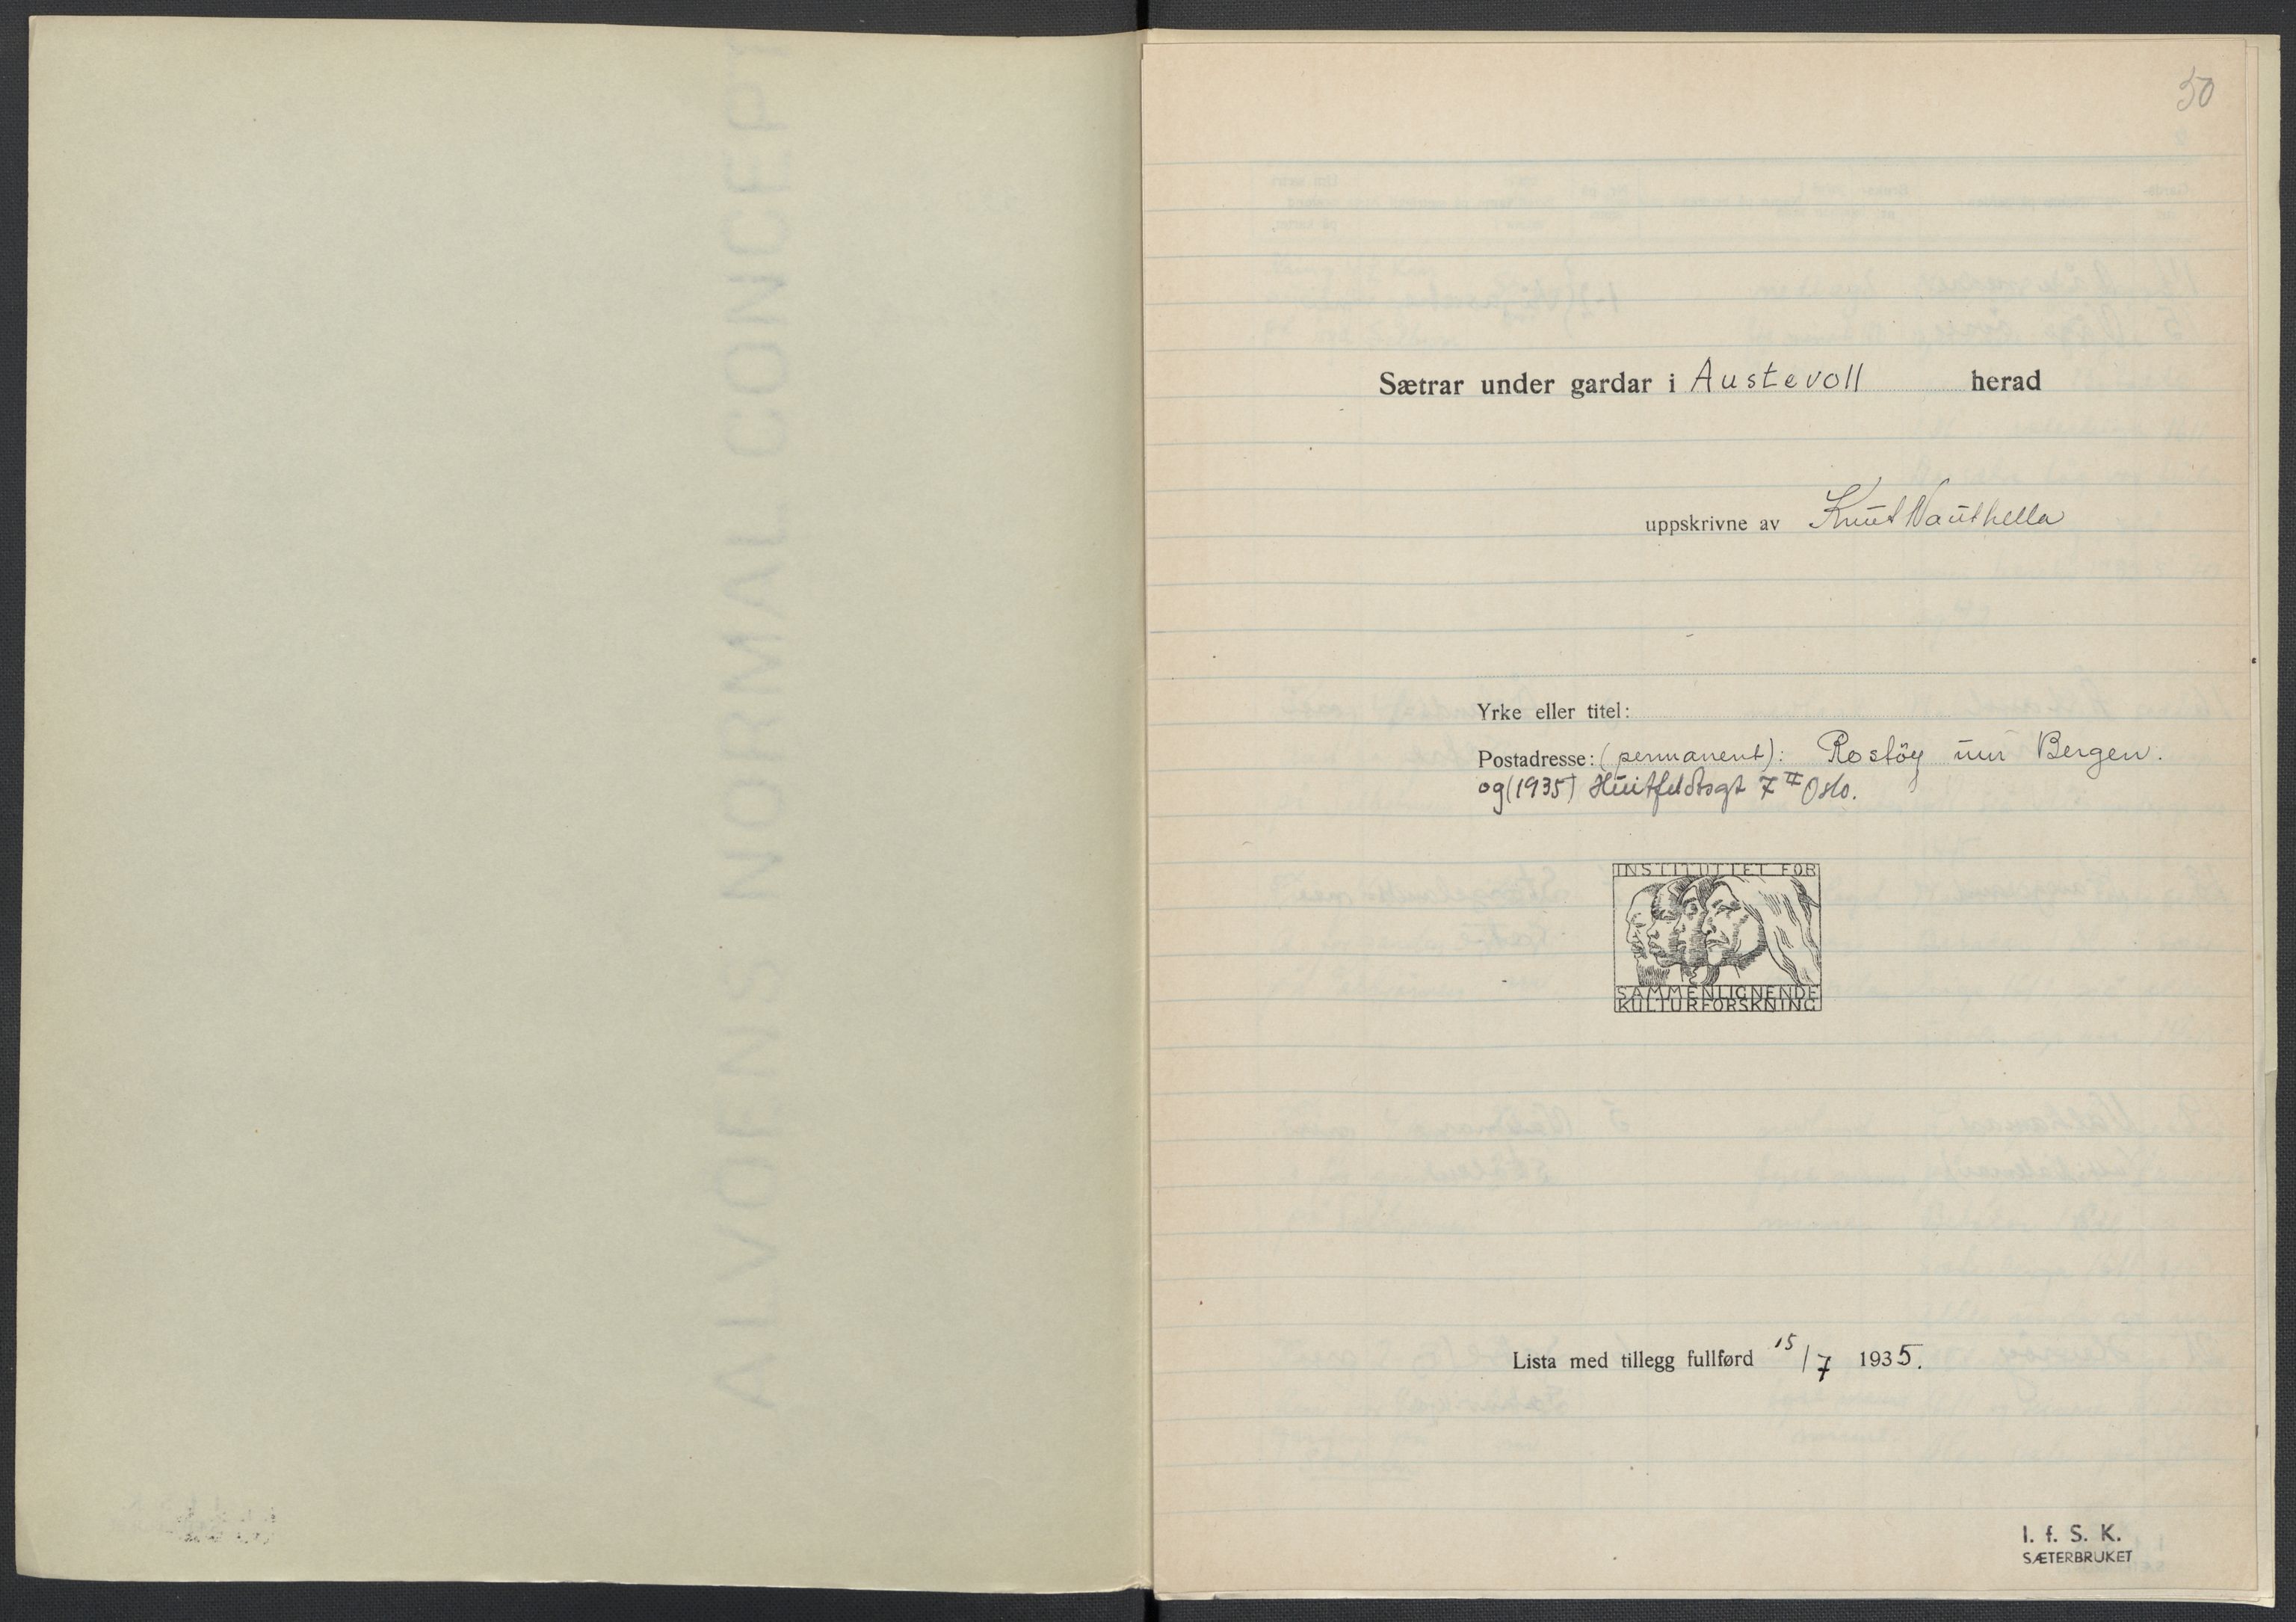 50
Sætrar under gardar i Austevoll herad
uppskrivne av Knut Nauthella
Yrke eller titel:
Postadresse: (permanent): Rostöy um Bergen.
og (1935) Huitfeldtsgt 7 II Oslo.
INSTITUTTET FOR
SAMMENLIGNENDE
KULTURFORSKNING
Lista med tillegg fullførd 15/7 1935.
I. f. S. K.
SÆTERBRUKET